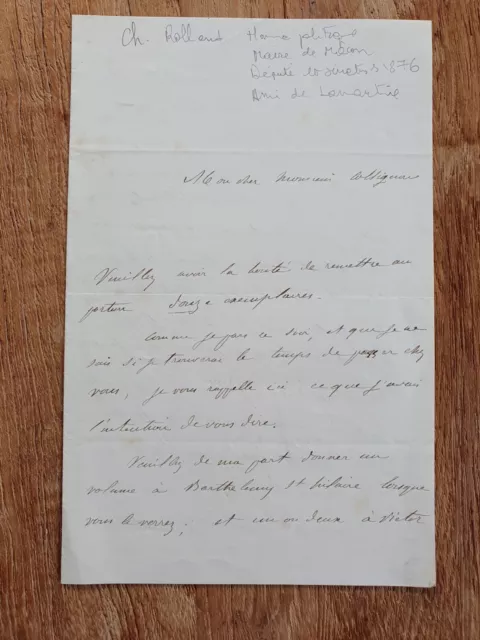 Ch. Rolland Homme politique
Maire de Macon
Député 1876
Ami de Lamartine
Mon cher Monsieur
Veuillez avoir la bonté de remettre au
porteur douze exemplaires.
Comme je pars ce soir, et que je ne
sais si je trouverai le temps de passer chez
vous, je vous rappelle ici ce que j'avais
l'intention de vous dire.
Veuillez de ma part donner un
volume à Barthelemy St hilaire lorsque
vous le verrez; et un ou deux à Victor